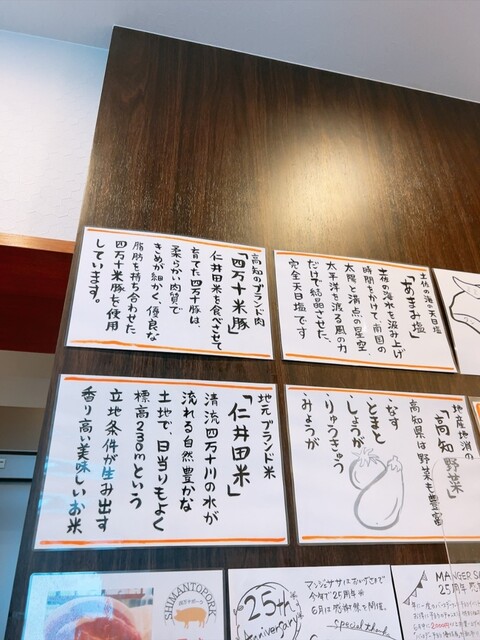 高知のブランド肉
「四万十米豚」
仁井田米を食べさせて
育てた四万十豚は、
柔らかい肉質で
きめが細かく、優良な
脂肪を持ち合わせた
四万十米豚を使用
しています。
土佐の海の天日塩
「あまみ塩」
土佐の海水を汲み上げ
時間をかけて、南国の
太陽と満点の星空、
太平洋を渡る風の力
だけで結晶させた、
完全天日塩です
地元ブランド米
「仁井田米」
清流四万十川の水が
流れる自然豊かな
土地で、日当りもよく
標高230mという
立地条件が生み出す
香り高い美味しいお米
地産地消の
「高知野菜」
高知県は野菜も豊富
なす
とまと
しょうが
りゅうきゅう
みょうが
SHIMANTOPORK
四万十ポーク
25th
Anniversary
マンジェササはおかげさまで
今年で25周年
6月は感謝祭を開催。
Special thank
MANGER SA
25周年